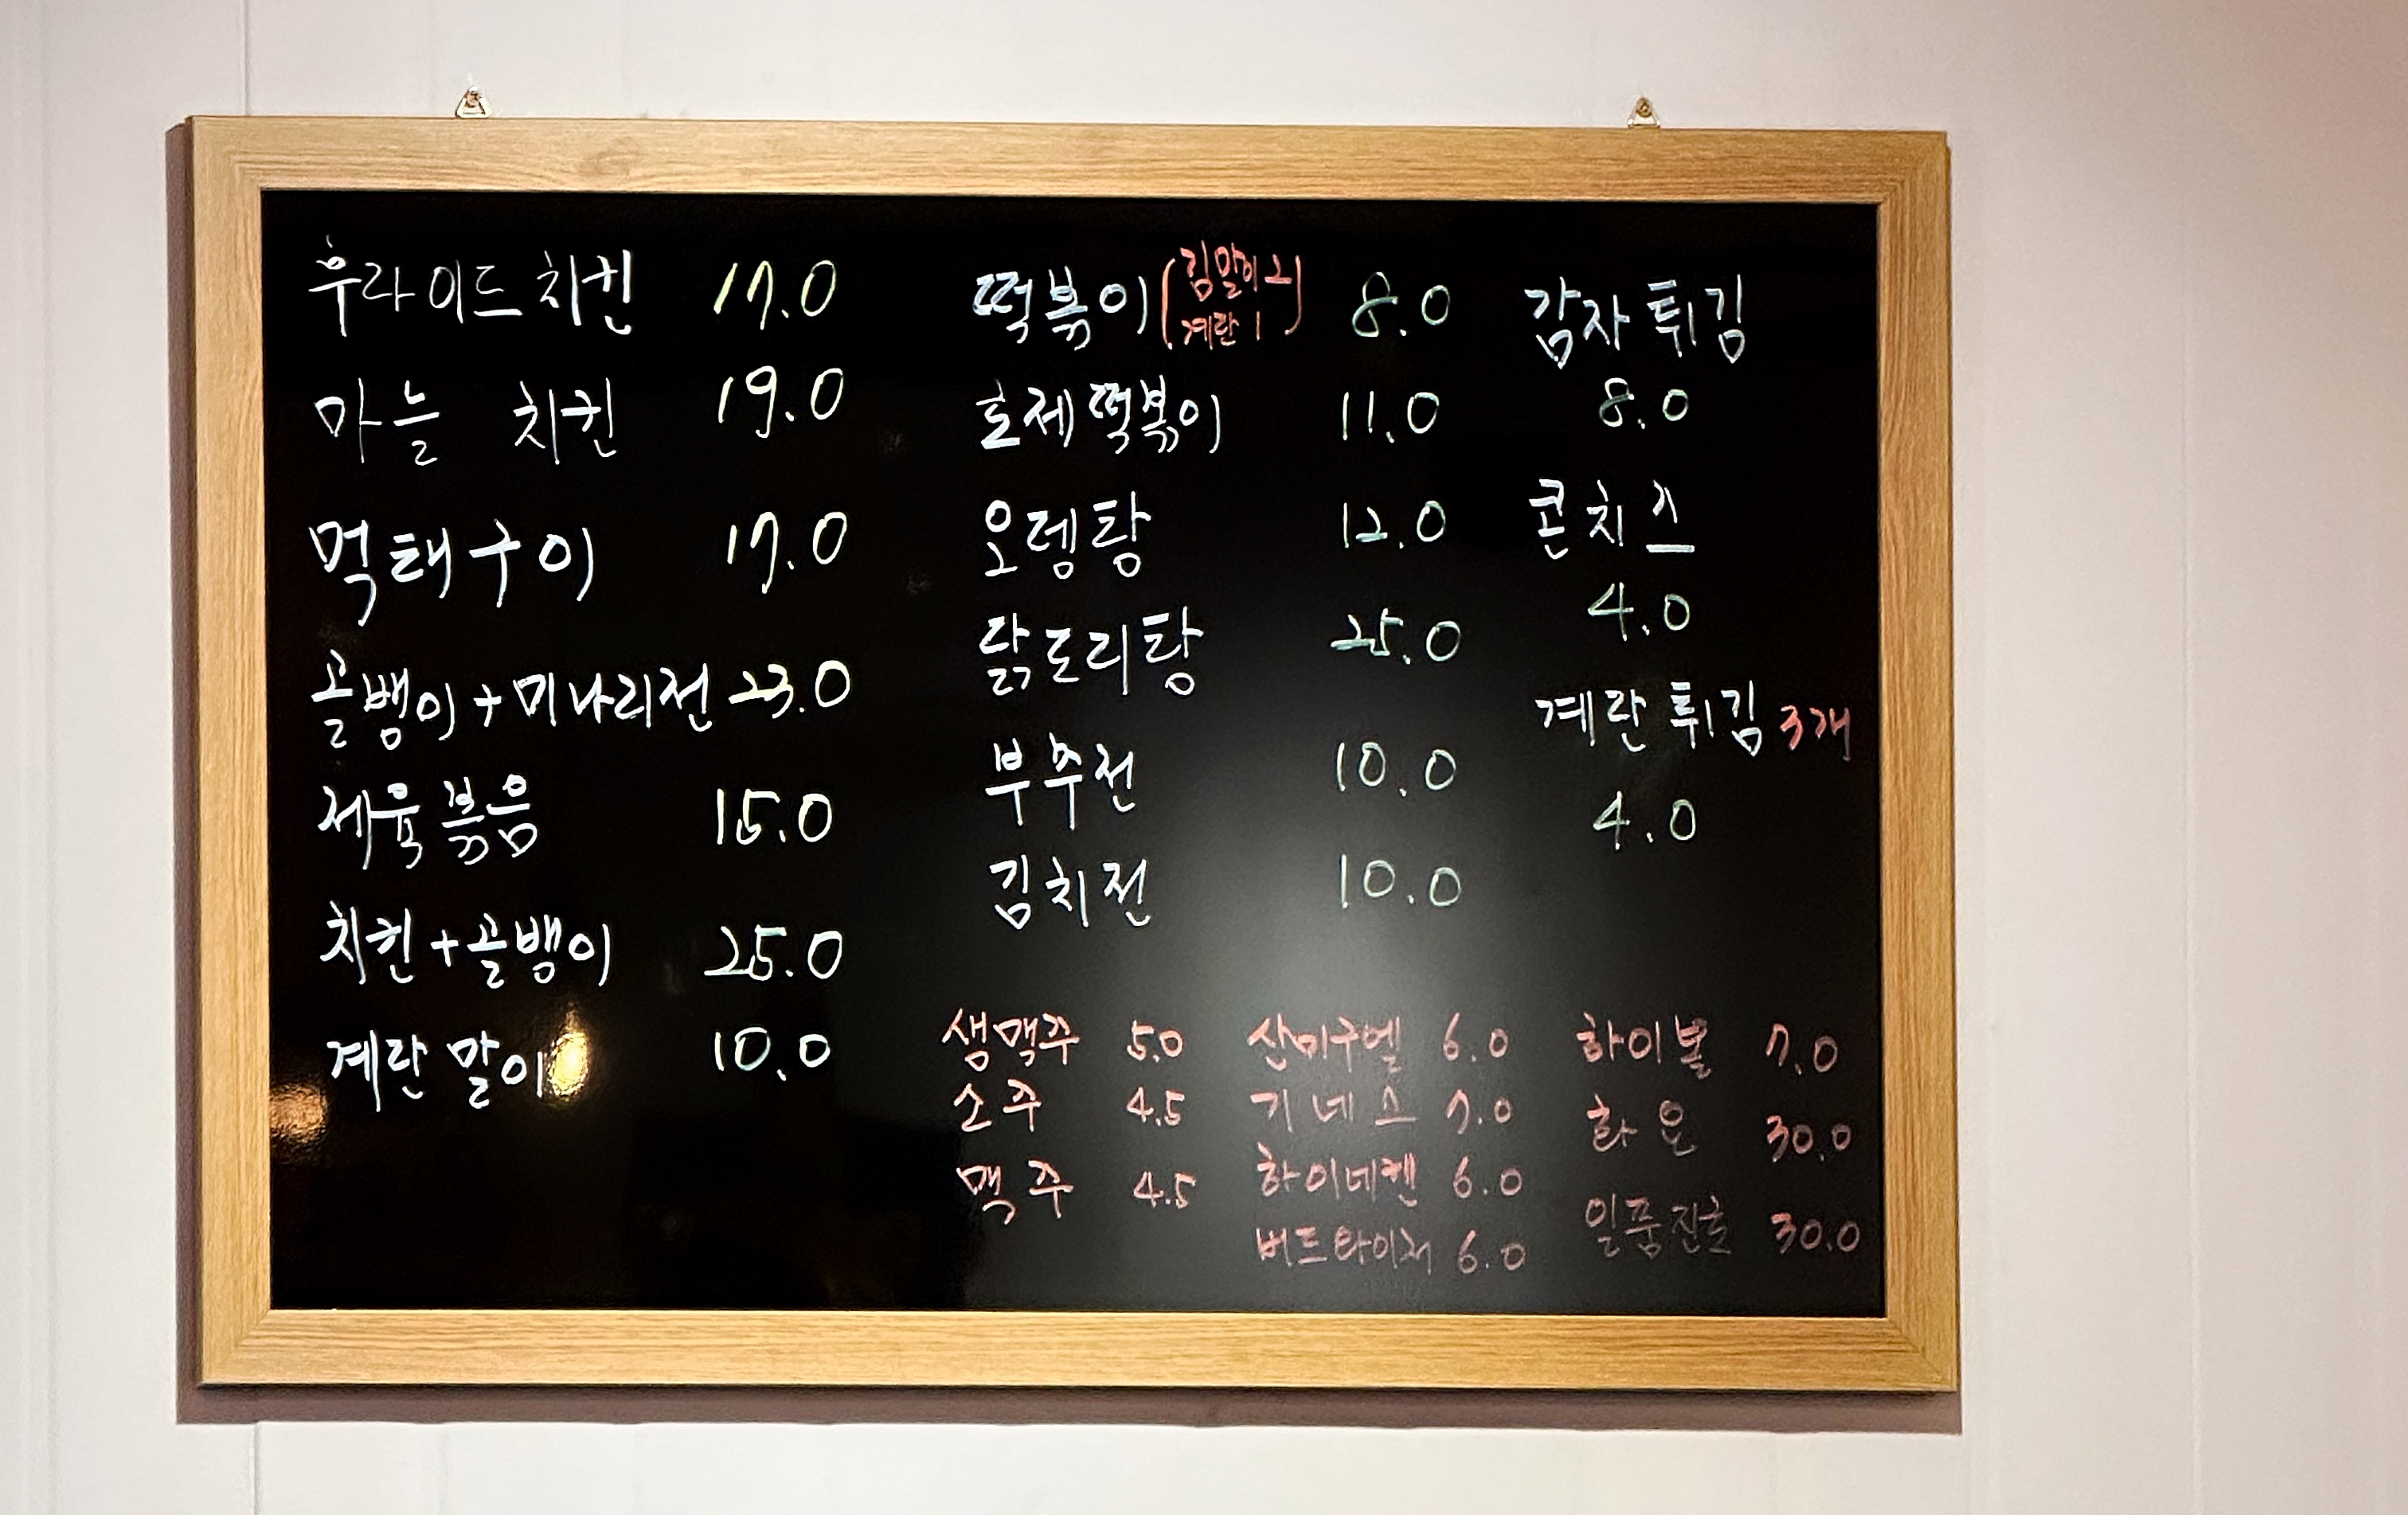 후라이드 치킨 17.0
마늘 치킨 19.0
먹태구이 17.0
골뱅이+미나리전 23.0
제육볶음 15.0
치킨+골뱅이 25.0
계란말이 10.0
떡볶이(김말이2 계란1) 8.0
호제떡볶이 11.0
오뎅탕 12.0
닭도리탕 25.0
부추전 10.0
김치전 10.0
감자튀김
8.0
콘치즈
4.0
계란튀김 3개
4.0
생맥주 5.0
소주 4.5
맥주 4.5
산미구엘 6.0
기네스 7.0
하이네켄 6.0
버드와이저 6.0
하이볼 7.0
화요 30.0
일품진로 30.0